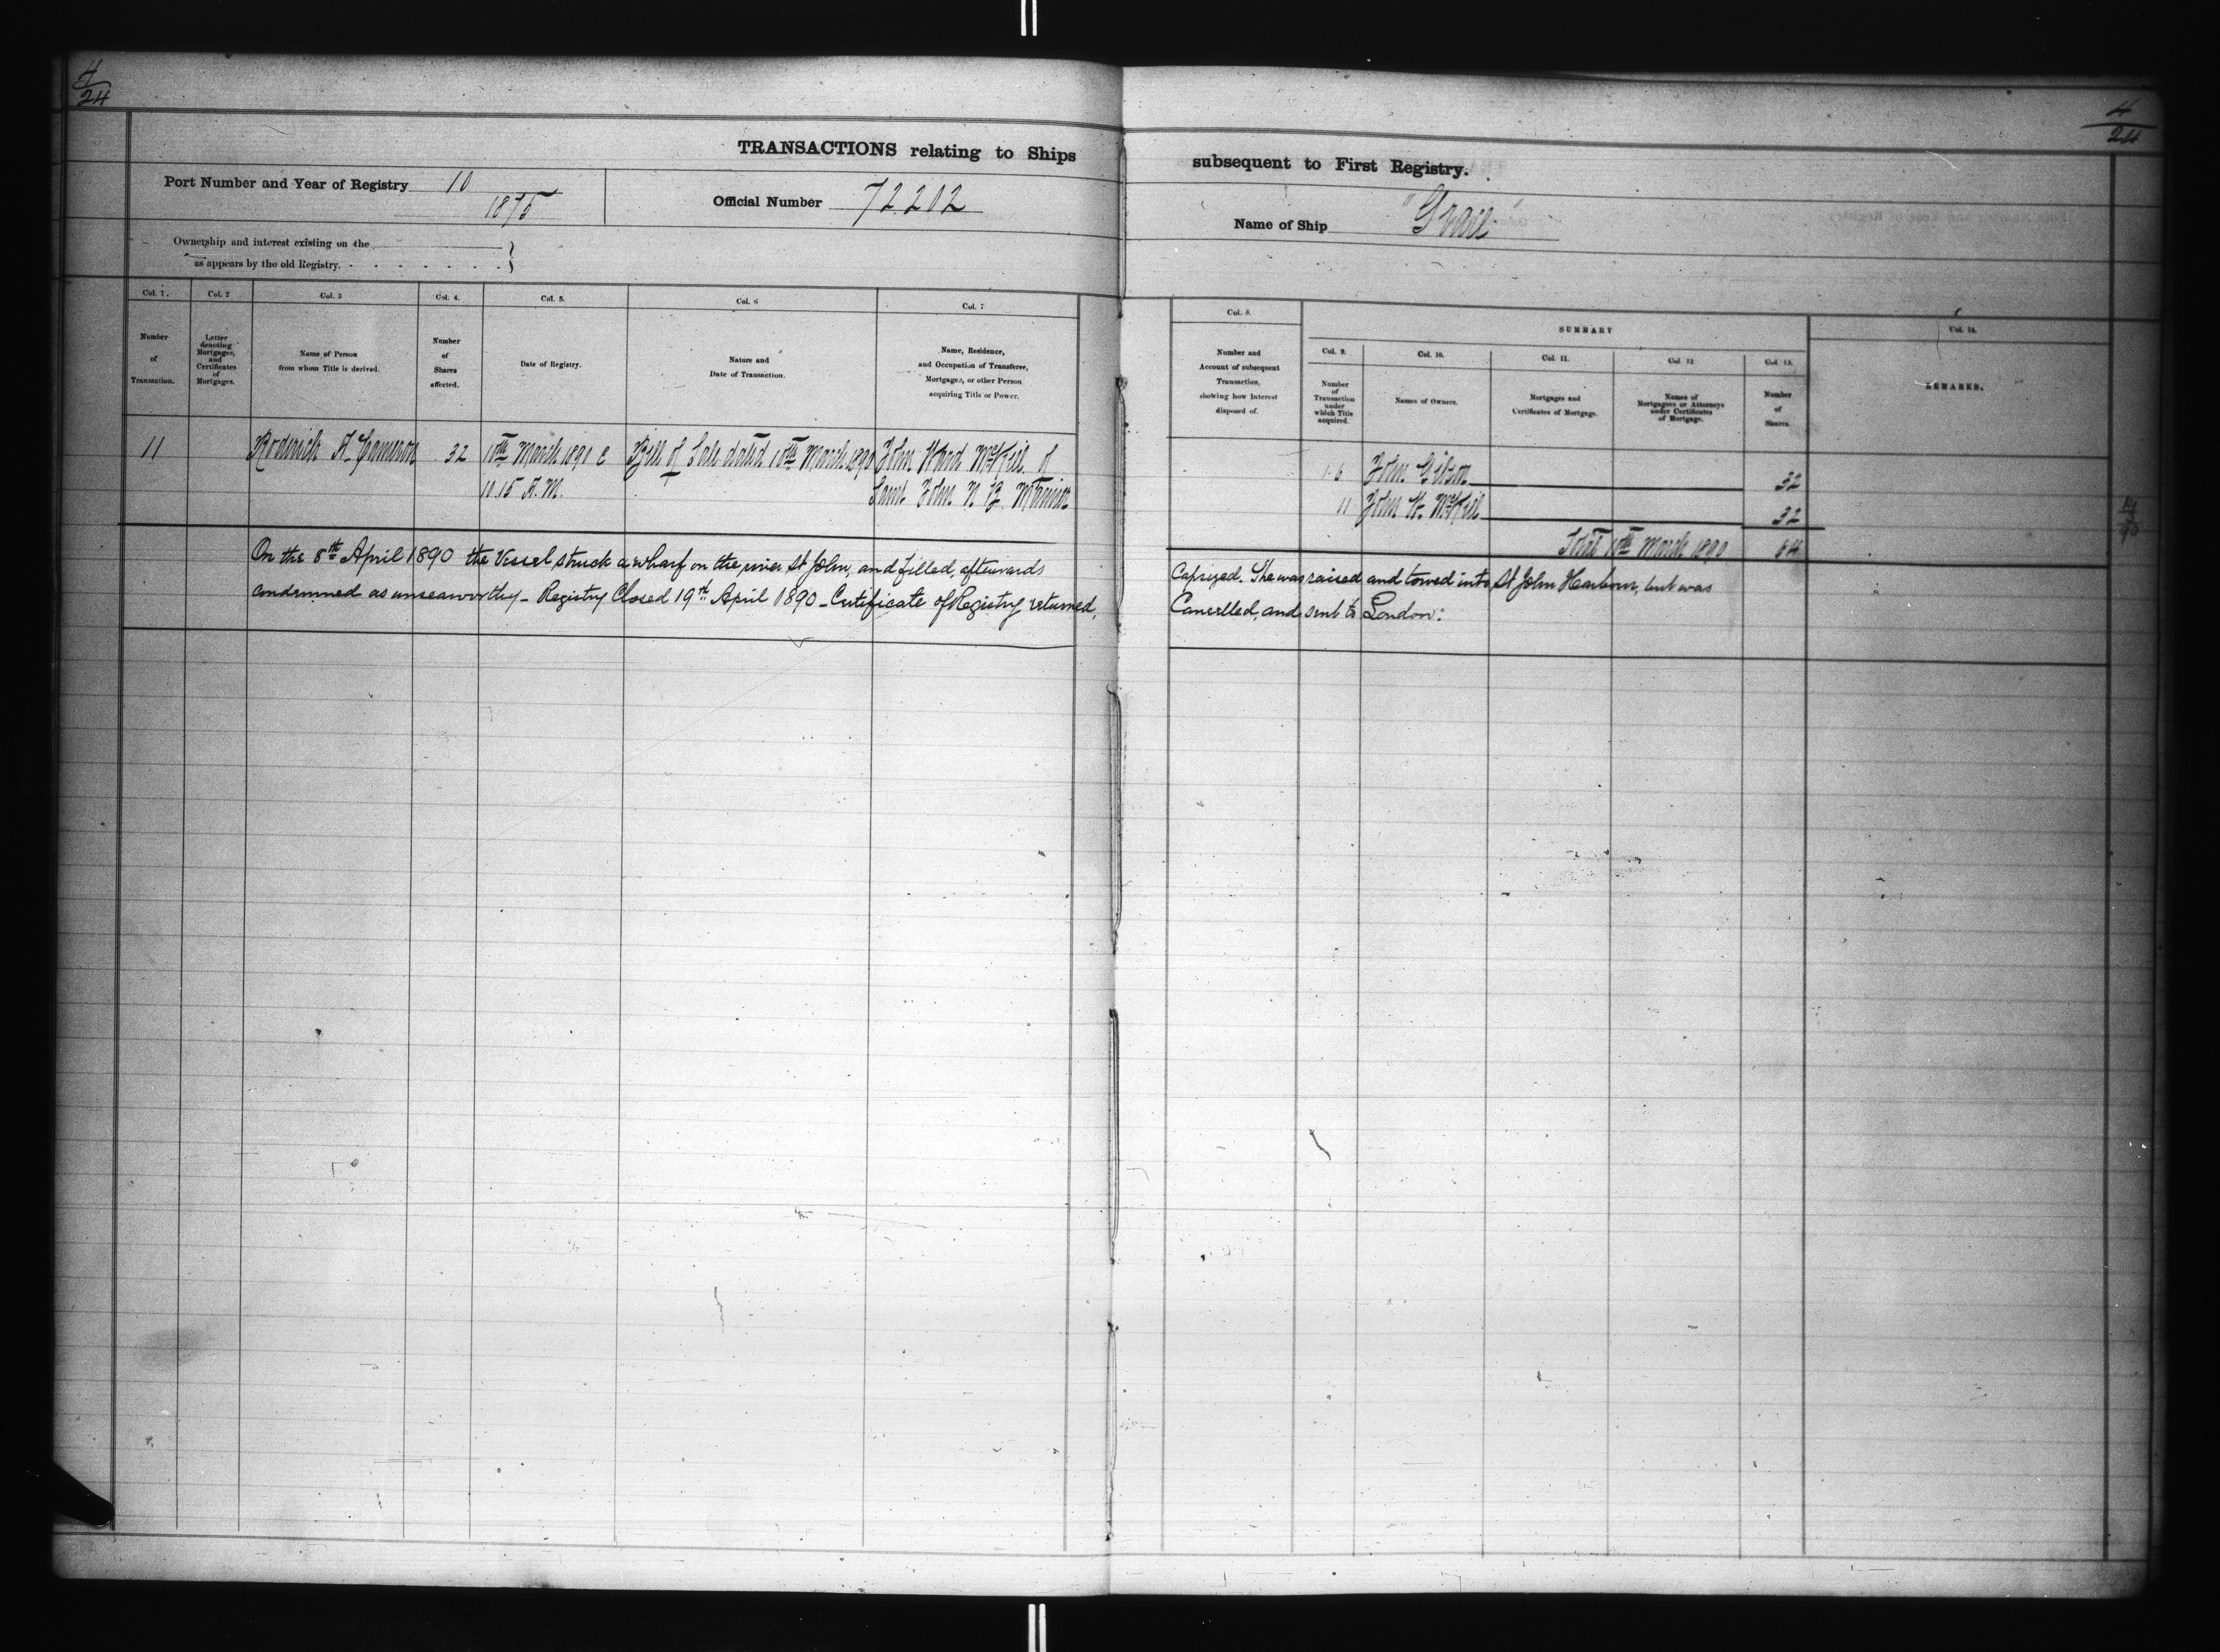 4
24
4
24
TRANSACTIONS relating to Ships subsequent to First Registry.
Port Number and Year of Registry 10
1875
Official Number 72202
Name of Ship "Grace"
Ownership and interest existing on the
as appears by the old Registry.
Col. 1. Col. 2 Col. 3 Col. 4. Col. 5. Col. 6 Col. 7 Col. 8.
SUMMARY
Col. 9. Col. 10. Col. 11. Col. 12 Col. 13. Col. 14.
Number
of
Transaction.
Letter
denoting
Mortgages,
and
Certificates
of
Mortgages.
Name of Person
from whom Title is derived.
Number
of
Shares
affected.
Date of Registry.
Nature and
Date of Transaction.
Name, Residence,
and Occupation of Transferee,
Mortgagee, or other Person
acquiring Title or Power.
Number and
Account of subsequent
Transaction,
showing how Interest
disposed of.
Number
of
Transaction
under
which Title
acquired.
Names of Owners.
Mortgages and
Certificates of Mortgage.
Names of
Mortgagees or Attorneys
under Certificates
of Mortgage.
Number
of
Shares.
REMARKS.
11 Roderick A. Cameron 32 10th March 1890 @ Bill of Sale dated 10th March 1890 John Ward of
10.15 A.M. Saint John N.B. Mariner
1.6 John Gibson 32
11 John W. 32
Total 10th March 1890 64
On the 8th April 1890 the Vessel struck a wharf on the river St John, and filled, afterwards Capsized. She was raised and towed into St John Harbour, but was
condemned as unseaworthy - Registry Closed 19th April 1890 - Certificate of Registry returned, Cancelled, and sent to London: